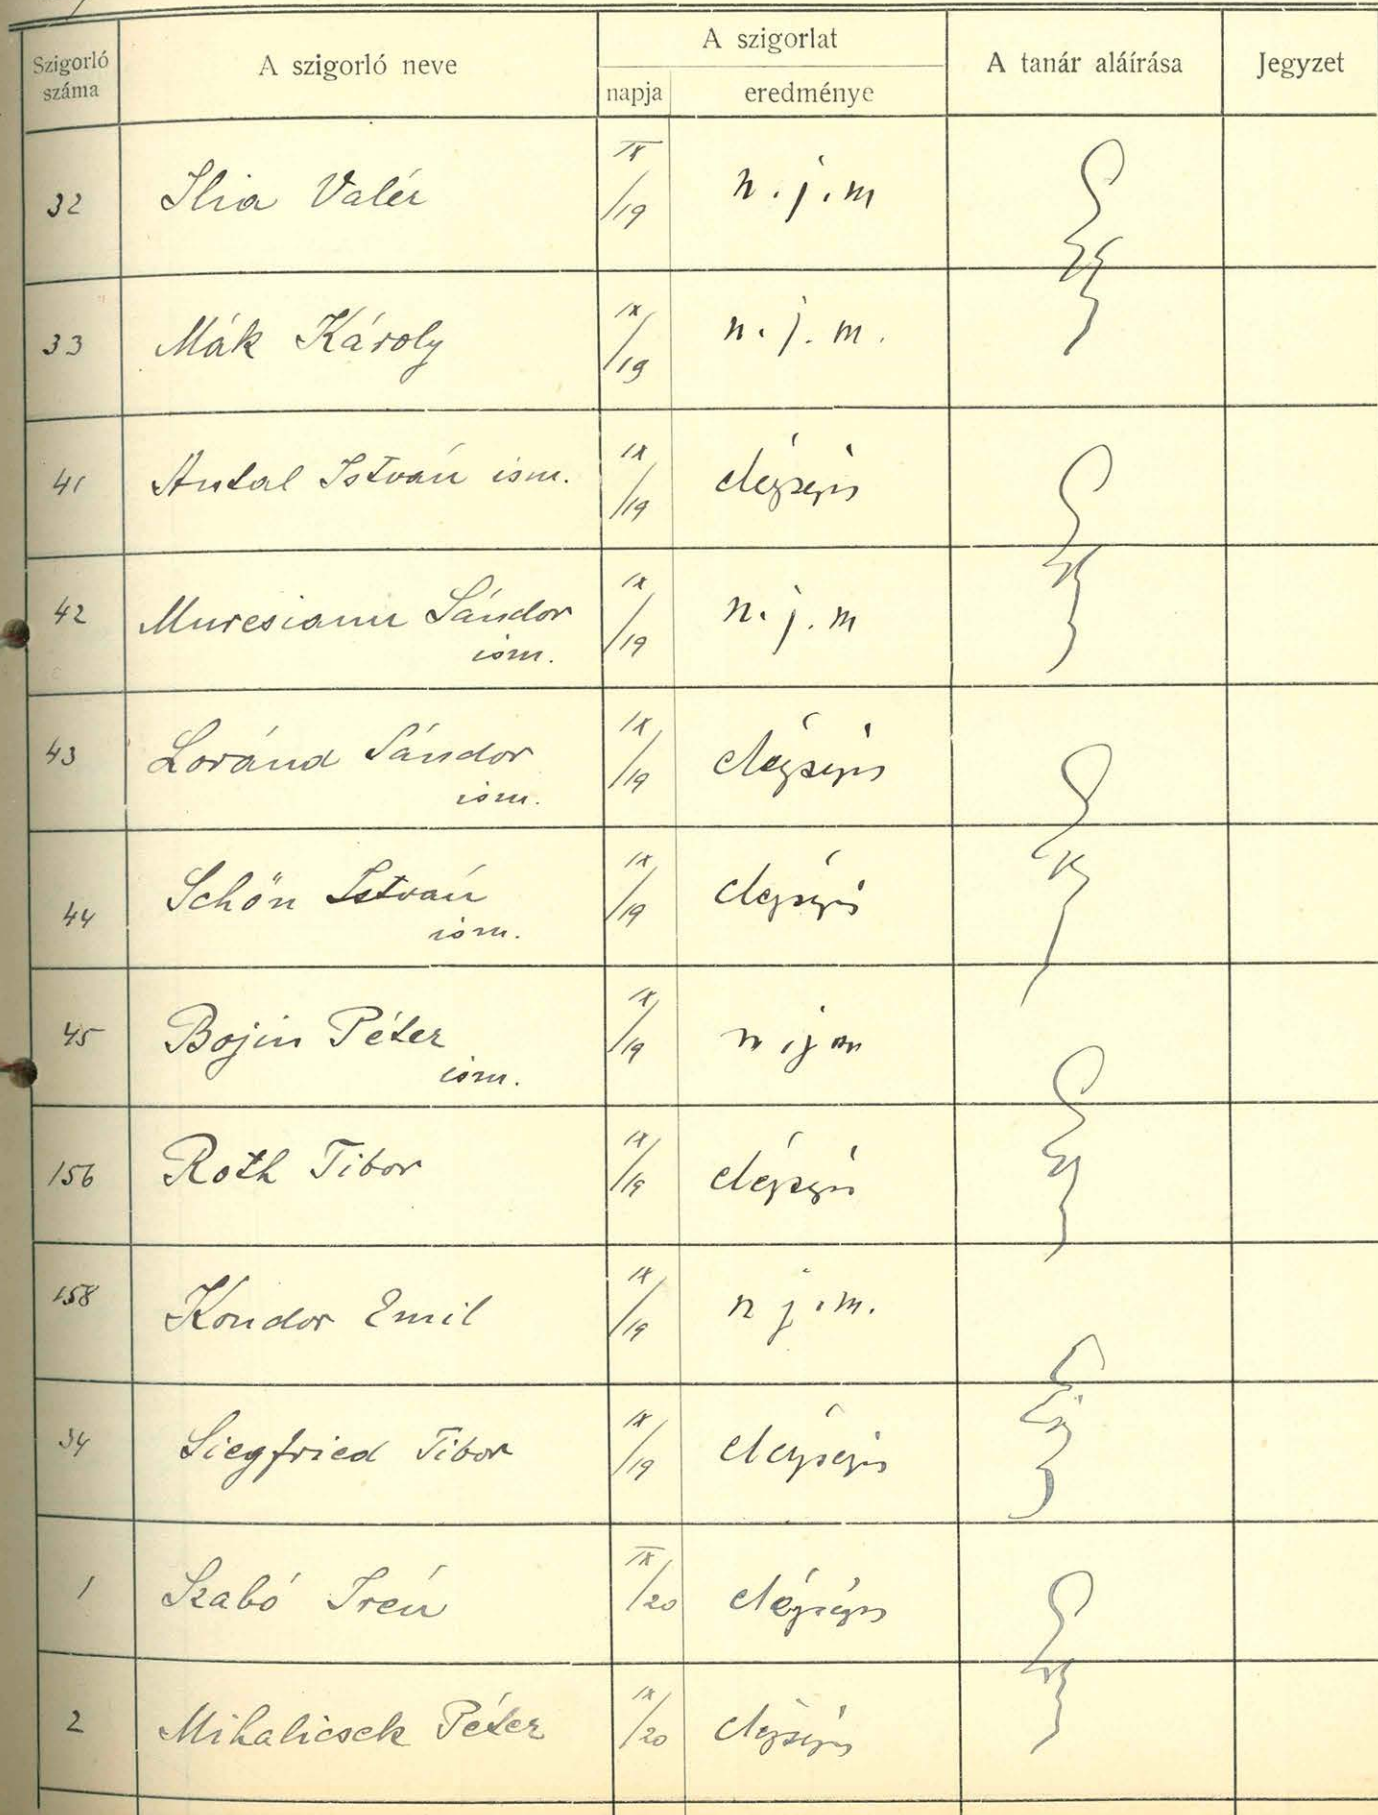 Szigorló száma
A szigorló neve
A szigorlat
napja
eredménye
A tanár aláírása
Jegyzet
32 Ilia Valér IX/19 n.j.m
33 Mák Károly IX/19 n.j.m.
41 Antal István ism. IX/19 elégséges
42 Muresianu Sándor IX/19 n.j.m
ism.
43 Loránd Sándor IX/19 elégséges
ism.
44 Schön István IX/19 elégséges
ism.
45 Bojin Péter IX/19 n.j m
ism.
156 Roth Tibor IX/19 elégséges
158 Kondor Emil IX/19 n j.m.
34 Siegfried Tibor IX/19 elégséges
1 Szabó Irén IX/20 elégséges
2 Mihalicsek Péter IX/20 elégséges